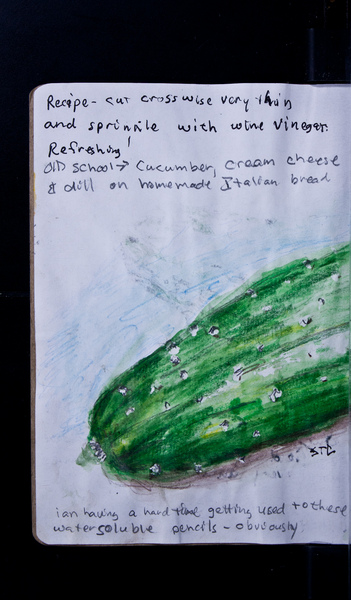 Recipe - cut crosswise very thin
and sprinkle with wine vineger.
Refreshing!
OlD school → Cucumber, cream cheese
& dill on homemade Italian bread
STC
i an having a hard time getting used to these
watersoluble pencils - obviously